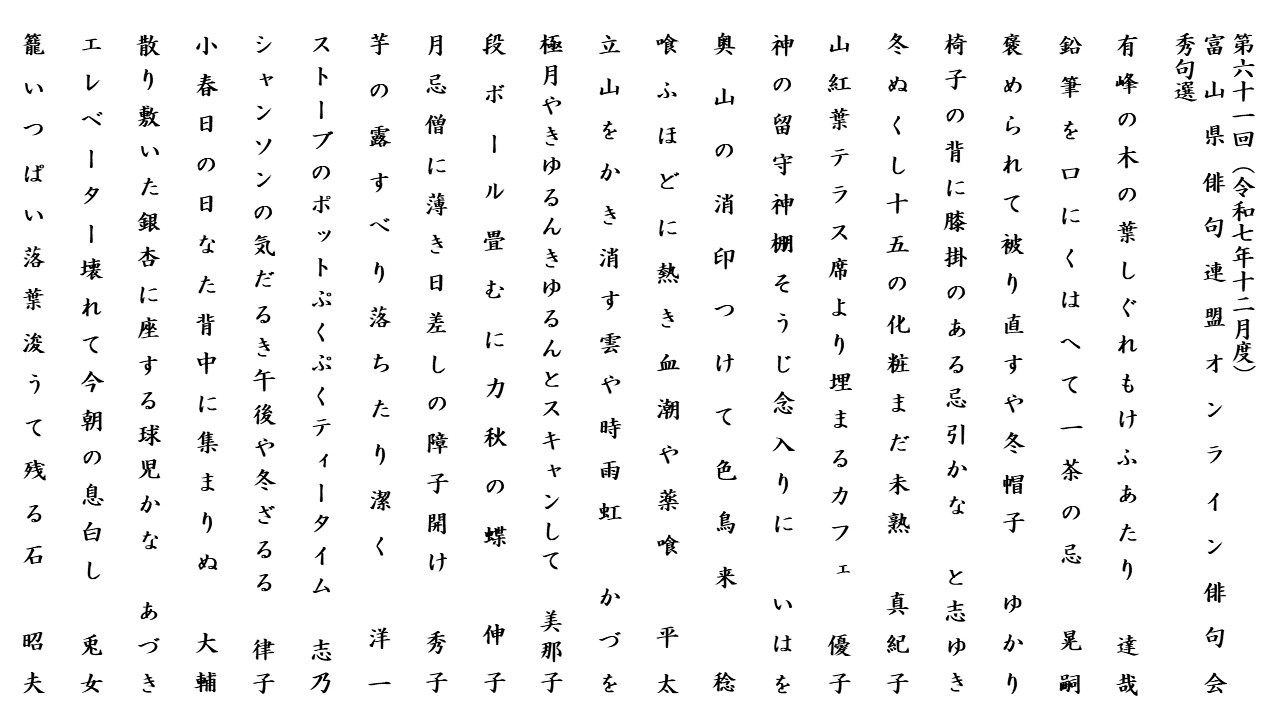 第六十一回（令和七年十二月度）
富山県俳句連盟オンライン俳句会
秀句選
有峰の木の葉しぐれもけふあたり　達哉
鉛筆を口にくはへて一茶の忌　晃嗣
褒められて被り直すや冬帽子　ゆかり
椅子の背に膝掛のある忌引かな　と志ゆき
冬ぬくし十五の化粧まだ未熟　真紀子
山紅葉テラス席より埋まるカフェ　優子
神の留守神棚そうじ念入りに　いはを
奥山の消印つけて色鳥来　稔
喰ふほどに熱き血潮や薬喰　平太
立山をかき消す雲や時雨虹　かづを
極月やきゆるんきゆるんとスキャンして　美那子
段ボール畳むに力秋の蝶　伸子
月忌僧に薄き日差しの障子開け　秀子
芋の露すべり落ちたり潔く　洋一
ストーブのポットぷくぷくティータイム　志乃
シャンソンの気だるき午後や冬ざるる　律子
小春日の日なた背中に集まりぬ　大輔
散り敷いた銀杏に座する球児かな　あづき
エレベーター壊れて今朝の息白し　兎女
籠いつぱい落葉浚うて残る石　昭夫